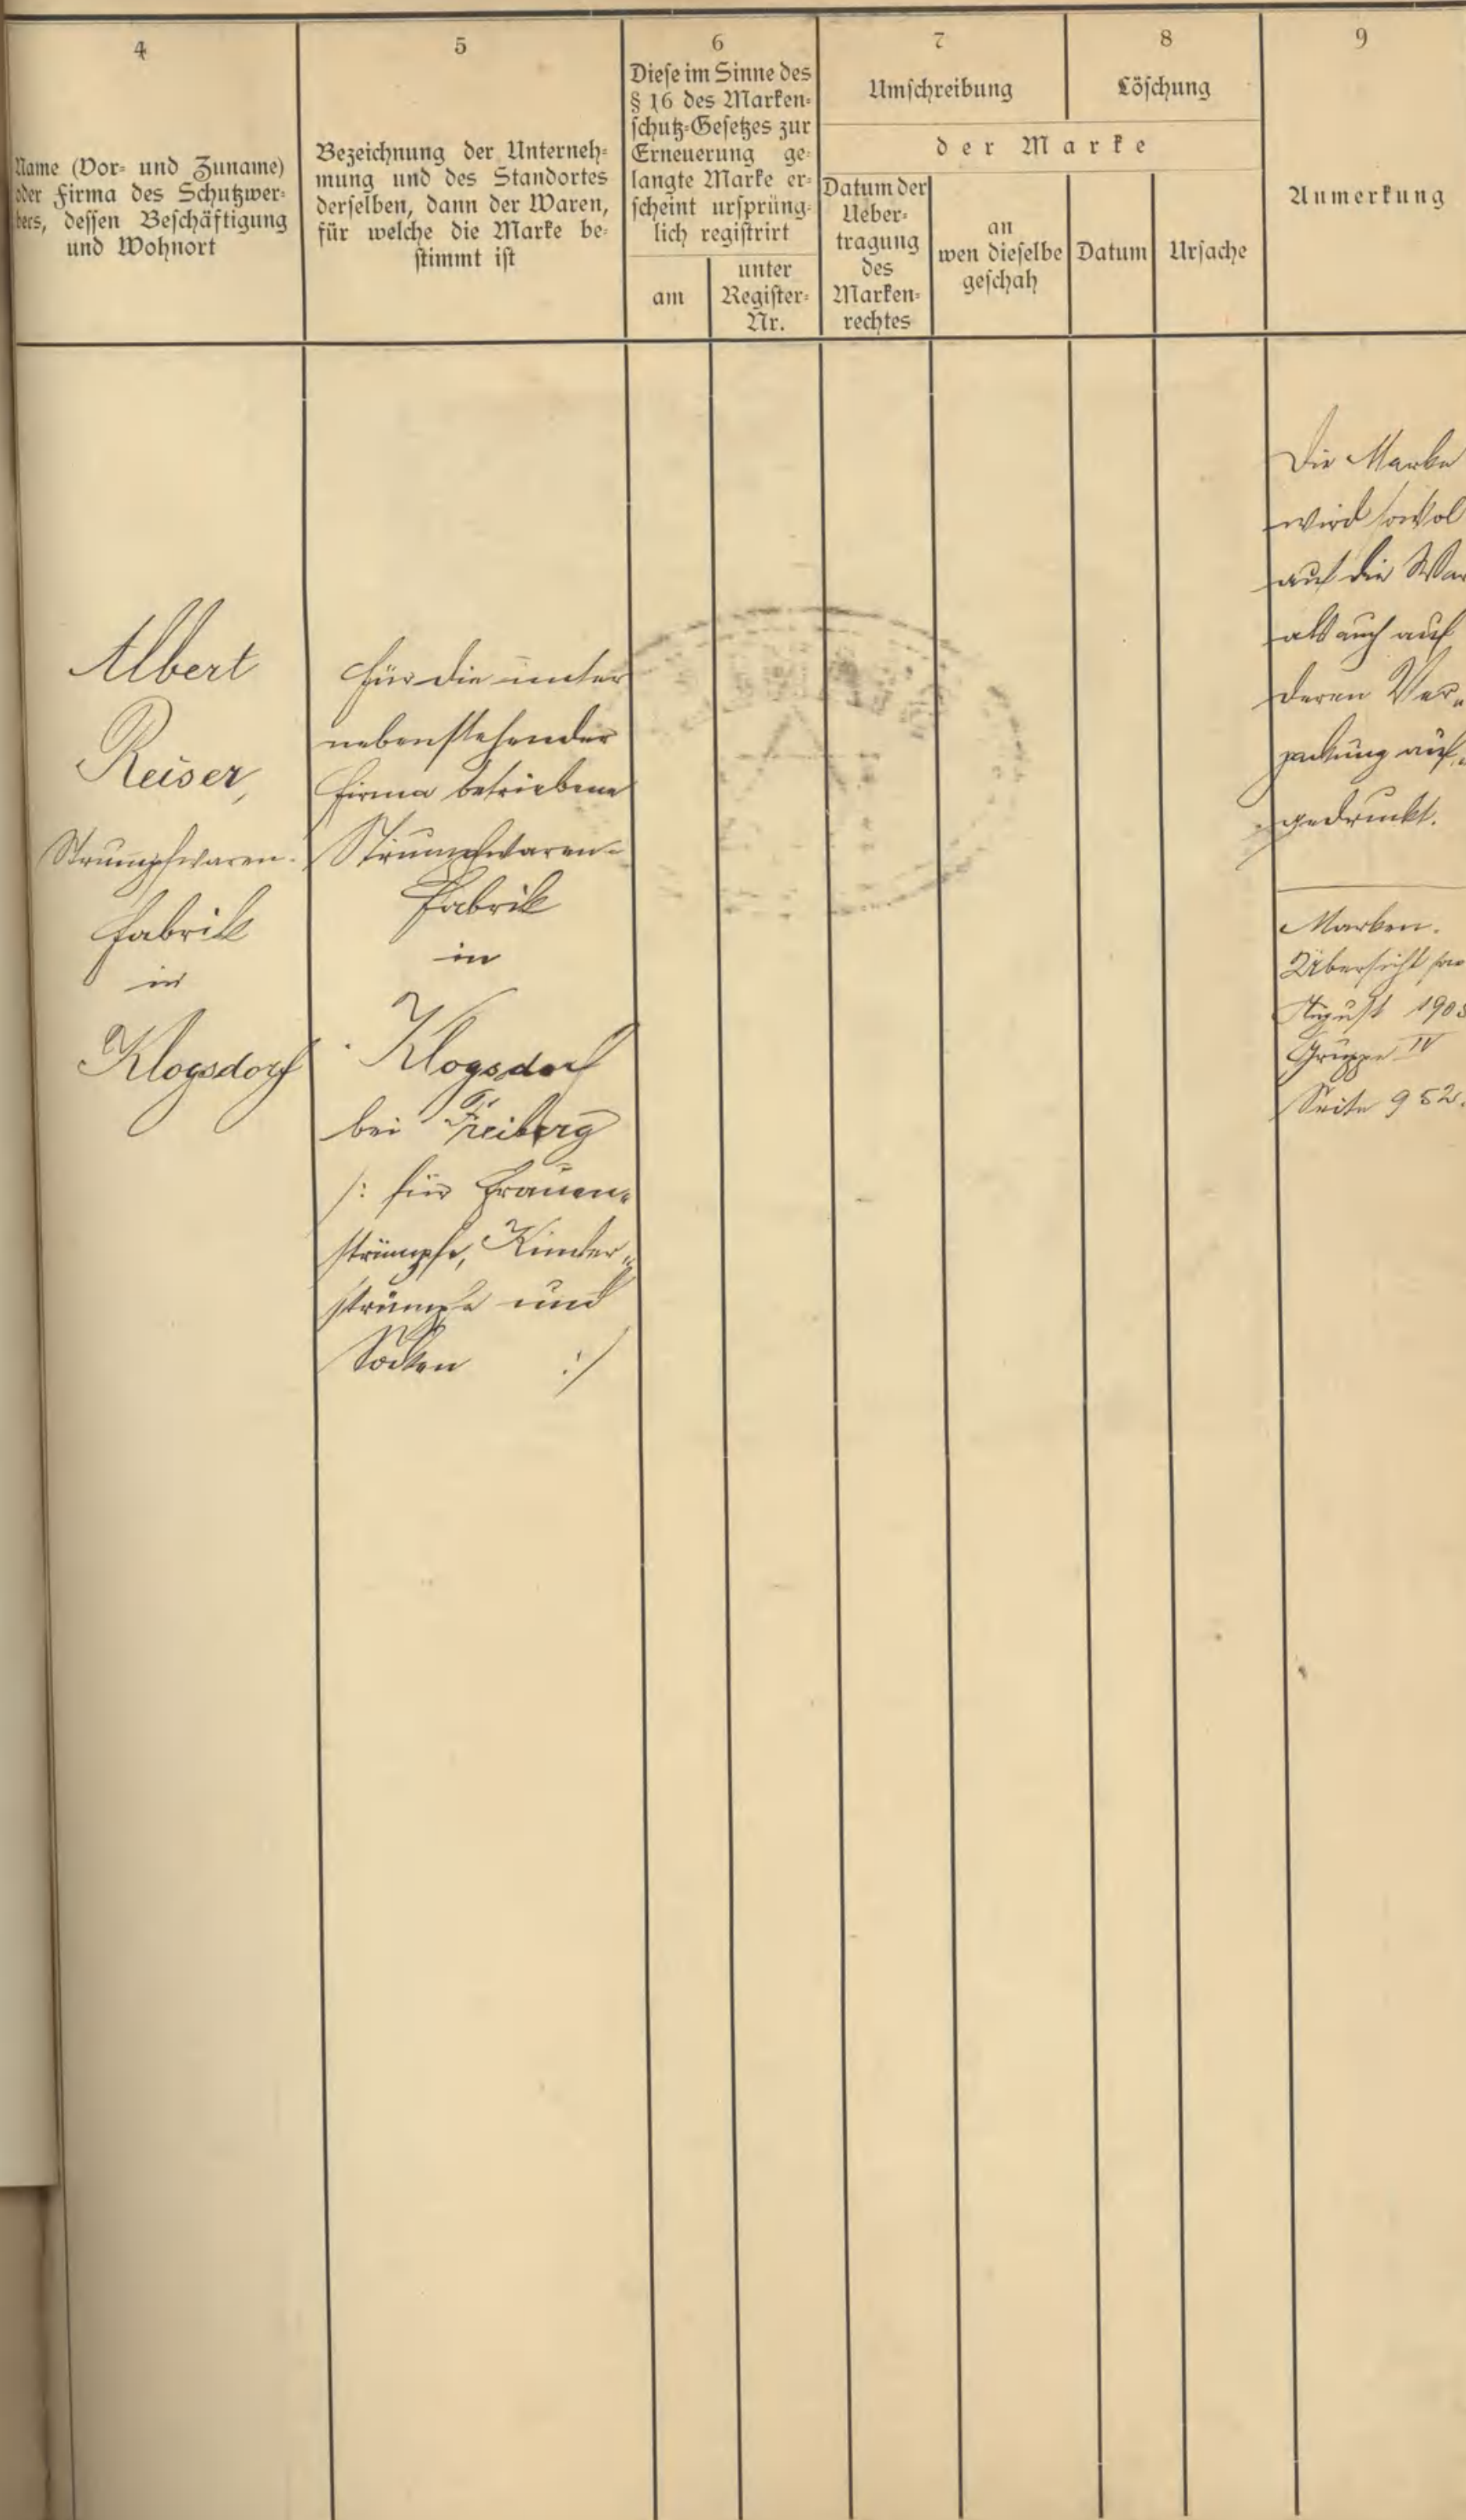 4
Name (Vor- und Zuname)
oder Firma des Schutzwer-
bers, dessen Beschäftigung
und Wohnort
5
Bezeichnung der Unterneh-
mung und des Standortes
derselben, dann der Waren,
für welche die Marke be-
stimmt ist
6
Diese im Sinne des
§ 16 des Marken-
schutz-Gesetzes zur
Erneuerung ge-
langte Marke er-
scheint ursprüng-
lich registrirt
am
unter
Register-
Nr.
7
Umschreibung
8
Löschung
der Marke
Datum der
Ueber-
tragung
des
Marken-
rechtes
an
wen dieselbe
geschah
Datum
Ursache
9
Anmerkung
Albert
Reiser,
Strumpfwaren-
fabrik
in
Klogsdorf
für die unter
nebenstehender
Firma betriebene
Strumpfwaren-
fabrik
in
Klogsdorf
bei Freiberg
/: für Frauen-
strümpfe, Kinder-
strümpfe und
Socken :/
Die Marke
wird sowol
auf die War
als auch auf
deren Ver-
packung auf-
gedruckt.
Marken-
Übersicht pro
August 190
Gruppe IV
Seite 952.